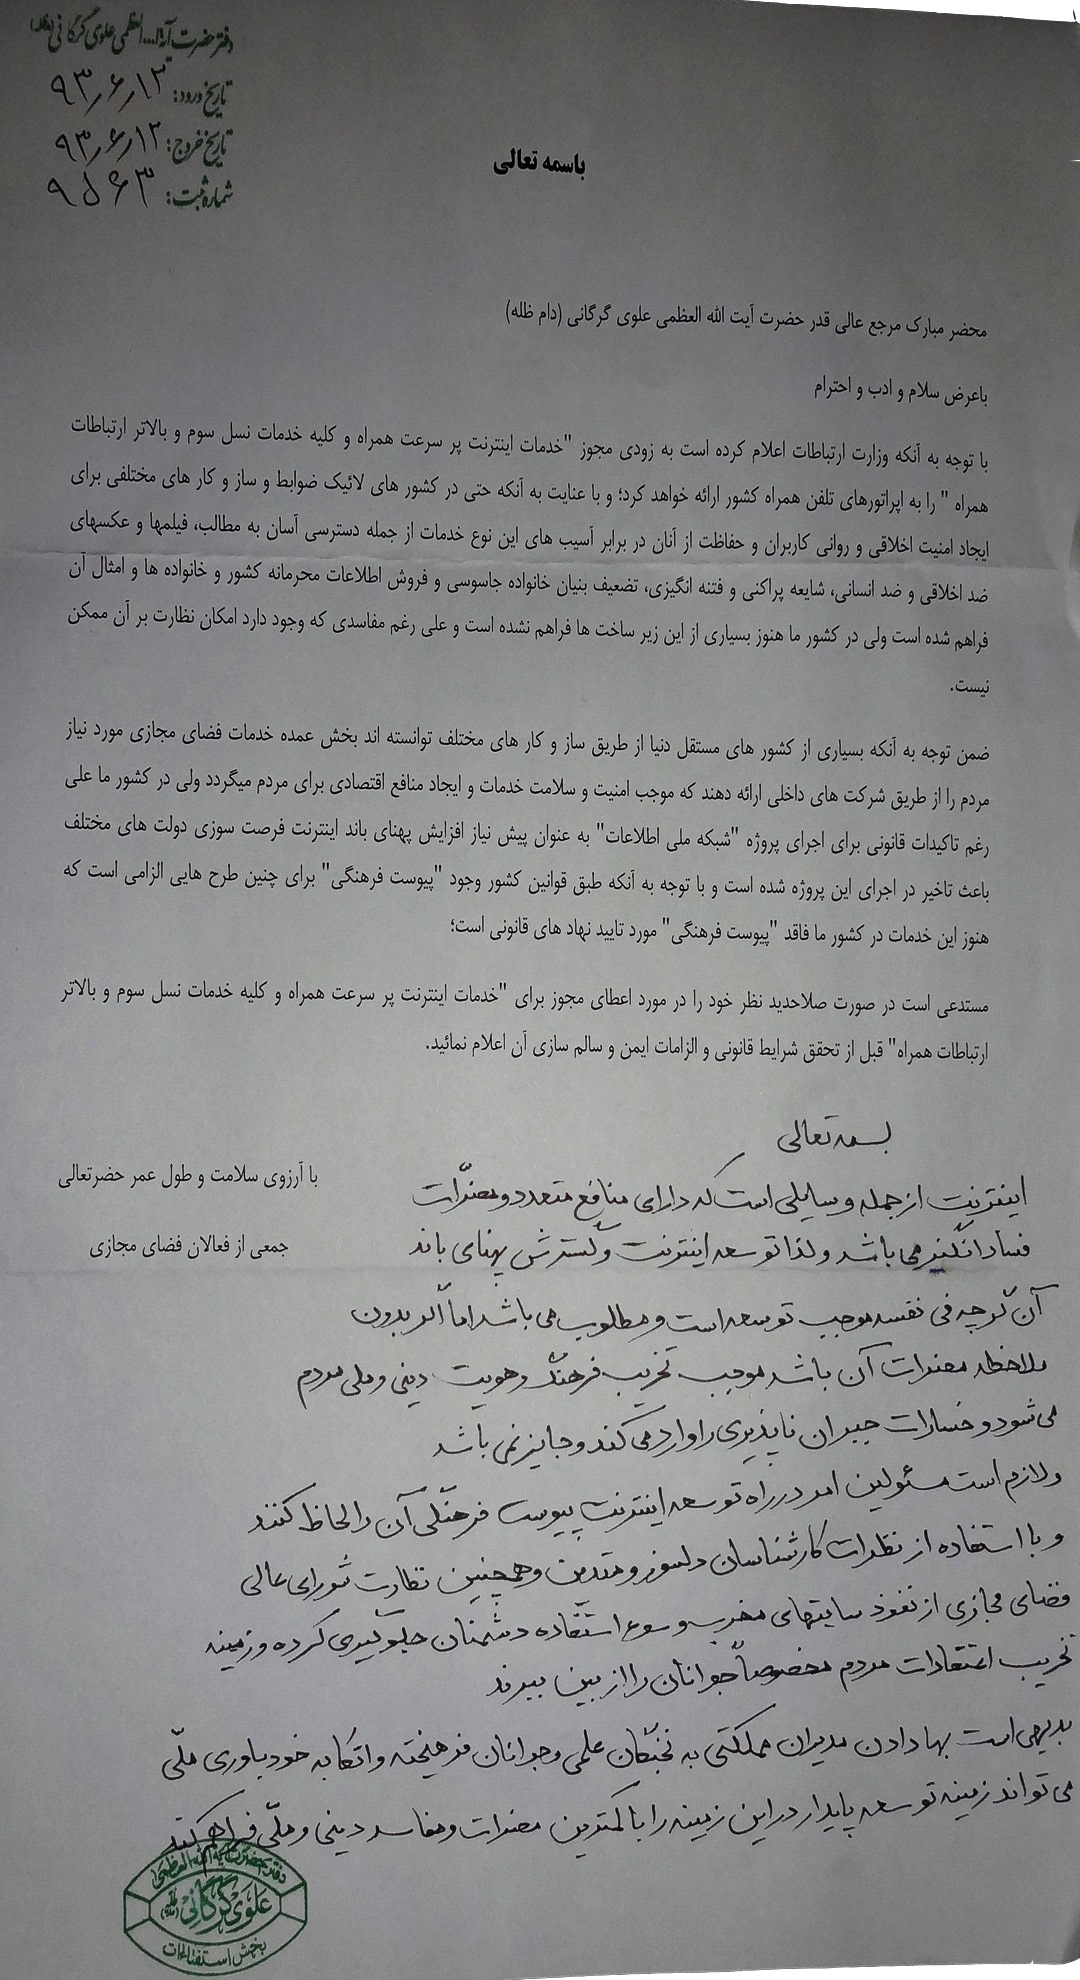 دفتر حضرت آیة ا... العظمی علوی گرگانی (مدظله)
تاریخ ورود: ۹۳٫۶٫۱۲
تاریخ خروج: ۹۳٫۶٫۱۲
شماره ثبت: ۹۵۶۳
باسمه تعالی
محضر مبارک مرجع عالی قدر حضرت آیت الله العظمی علوی گرگانی (دام ظله)
باعرض سلام و ادب و احترام
با توجه به آنکه وزارت ارتباطات اعلام کرده است به زودی مجوز "خدمات اینترنت پر سرعت همراه و کلیه خدمات نسل سوم و بالاتر ارتباطات
همراه " را به اپراتورهای تلفن همراه کشور ارائه خواهد کرد؛ و با عنایت به آنکه حتی در کشور های لائیک ضوابط و ساز و کار های مختلفی برای
ایجاد امنیت اخلاقی و روانی کاربران و حفاظت از آنان در برابر آسیب های این نوع خدمات از جمله دسترسی آسان به مطالب، فیلمها و عکسهای
ضد اخلاقی و ضد انسانی، شایعه پراکنی و فتنه انگیزی، تضعیف بنیان خانواده جاسوسی و فروش اطلاعات محرمانه کشور و خانواده ها و امثال آن
فراهم شده است ولی در کشور ما هنوز بسیاری از این زیر ساخت ها فراهم نشده است و علی رغم مفاسدی که وجود دارد امکان نظارت بر آن ممکن
نیست.
ضمن توجه به آنکه بسیاری از کشور های مستقل دنیا از طریق ساز و کار های مختلف توانسته اند بخش عمده خدمات فضای مجازی مورد نیاز
مردم را از طریق شرکت های داخلی ارائه دهند که موجب امنیت و سلامت خدمات و ایجاد منافع اقتصادی برای مردم میگردد ولی در کشور ما علی
رغم تاکیدات قانونی برای اجرای پروژه "شبکه ملی اطلاعات" به عنوان پیش نیاز افزایش پهنای باند اینترنت فرصت سوزی دولت های مختلف
باعث تاخیر در اجرای این پروژه شده است و با توجه به آنکه طبق قوانین کشور وجود "پیوست فرهنگی" برای چنین طرح هایی الزامی است که
هنوز این خدمات در کشور ما فاقد "پیوست فرهنگی" مورد تایید نهاد های قانونی است؛
مستدعی است در صورت صلاحدید نظر خود را در مورد اعطای مجوز برای "خدمات اینترنت پر سرعت همراه و کلیه خدمات نسل سوم و بالاتر
ارتباطات همراه" قبل از تحقق شرایط قانونی و الزامات ایمن و سالم سازی آن اعلام نمائید.
با آرزوی سلامت و طول عمر حضرتعالی
جمعی از فعالان فضای مجازی
بسمه تعالی
اینترنت از جمله وسایلی است که دارای منافع متعدد و مضرّات
فسادانگیز می باشد ولذا توسعه اینترنت و گسترش پهنای باند
آن گرچه فی نفسه موجب توسعه است و مطلوب می باشد اما اگر بدون
ملاحظه مضرات آن باشد موجب تخریب فرهنگ و هویت دینی و ملی مردم
می شود و خسارات جبران ناپذیری را وارد می کند و جایز نمی باشد
ولازم است مسئولین امر در راه توسعه اینترنت پیوست فرهنگی آن را لحاظ کنند
و با استفاده از نظرات کارشناسان دلسوز و متدین و همچنین نظارت شورای عالی
فضای مجازی از نفوذ سایتهای مخرب و سوء استفاده دشمنان جلوگیری کرده و زمینه
تخریب اعتقادات مردم مخصوصاً جوانان را از بین ببرند
بدیهی است بها دادن مدیران مملکتی به نخبگان علمی و جوانان فرهیخته و اتکا به خودباوری ملّی
می تواند زمینه توسعه پایدار در این زمینه را با کمترین مضرات و مفاسد دینی و ملّی فراهم کند
دفتر حضرت آیة الله العظمی
علوی گرگانی (مدظله)
بخش استفتائات